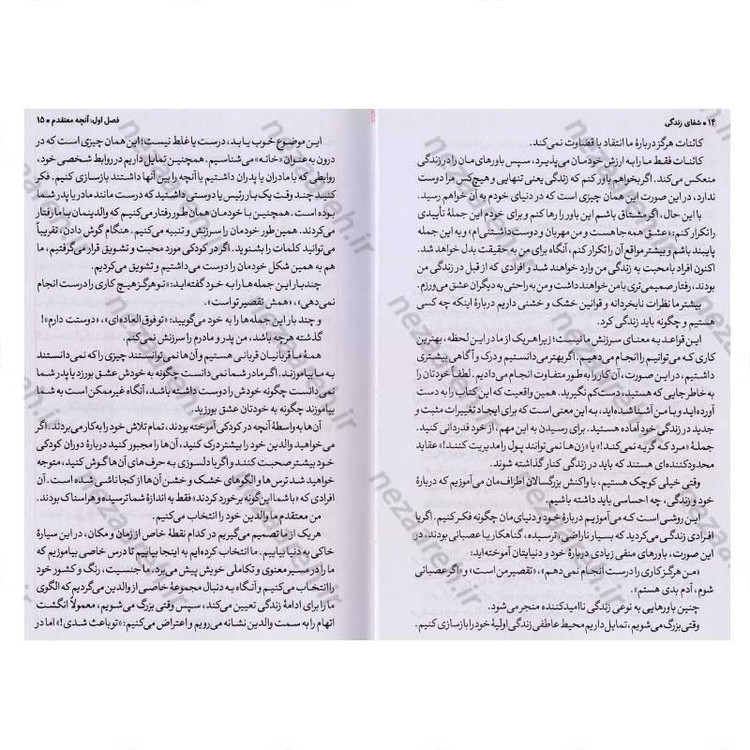 ۱۴ • شفای زندگی
کائنات هرگز دربارهٔ ما انتقاد یا قضاوت نمی‌کند.
کائنات فقط ما را به ارزش خودمان می‌پذیرد، سپس باورهای مان را در زندگی
منعکس می‌کند. اگر بخواهم باور کنم که زندگی یعنی تنهایی و هیچ‌کس مرا دوست
ندارد، در این صورت این همان چیزی است که در دنیای خودم به آن خواهم رسید.
با این حال، اگر مشتاق باشم این باور را رها کنم و برای خودم این جملهٔ تأییدی
را تکرار کنم: «عشق همه جا هست و من مهربان و دوست داشتنی‌ام»، و به این جمله
پایبند باشم و بیشتر مواقع آن را تکرار کنم، آنگاه برای من به حقیقت بدل خواهد شد.
اکنون افراد بامحبت به زندگی من وارد خواهند شد و افرادی که از قبل در زندگی من
بودند، رفتار صمیمی‌تری با من خواهند داشت و من به راحتی به دیگران عشق می‌ورزم.
بیشتر ما نظرات نابخردانه و قوانین خشک و خشنی داریم دربارهٔ اینکه چه کسی
هستیم و چگونه باید زندگی کرد.
این قواعد به معنای سرزنش ما نیست؛ زیرا هر یک از ما در این لحظه، بهترین
کاری که می‌توانیم را انجام می‌دهیم. اگر بهتر می‌دانستیم و درک و آگاهی بیشتری
داشتیم، در این صورت، آن کار را به طور متفاوت انجام می‌دادیم. لطفاً خودتان را
به خاطر جایی که هستید، دست‌کم نگیرید. همین واقعیت که این کتاب را به دست
آورده‌اید و با من آشنا شده‌اید، به این معنی است که برای ایجاد تغییرات مثبت و
جدید در زندگی خود آماده هستید. برای رسیدن به این مهم، از خود قدردانی کنید.
جملهٔ «مرد که گریه نمی‌کند!» یا «زن‌ها نمی‌توانند پول را مدیریت کنند!» عقاید
محدودکننده‌ای هستند که باید در زندگی کنار گذاشته شوند.
وقتی خیلی کوچک هستیم، با واکنش بزرگسالان اطراف‌مان می‌آموزیم که دربارهٔ
خود و زندگی، چه احساسی باید داشته باشیم.
این روشی است که می‌آموزیم دربارهٔ خود و دنیای مان چگونه فکر کنیم. اگر با
افرادی زندگی می‌کردید که بسیار ناراضی، ترسیده، گناهکار یا عصبانی بودند، در
این صورت، باورهای منفی زیادی دربارهٔ خود و دنیایتان آموخته‌اید:
«من هرگز کاری را درست انجام نمی‌دهم»، «تقصیر من است» و «اگر عصبانی
شوم، آدم بدی هستم».
چنین باورهایی به نوعی زندگی ناامیدکننده منجر می‌شود.
وقتی بزرگ می‌شویم، تمایل داریم محیط عاطفی زندگی اولیهٔ خود را بازسازی کنیم.
فصل اول: آنچه معتقدم • ۱۵
این موضوع خوب یا بد، درست یا غلط نیست؛ این همان چیزی است که در
درون به عنوان «خانه» می‌شناسیم. همچنین تمایل داریم در روابط شخصی خود،
روابطی که با مادران یا پدران داشتیم یا آنچه را بین آنها داشتند بازسازی کنیم. فکر
کنید چند وقت یک بار رئیس یا دوستی داشتید که درست مانند مادر یا پدر شما
بوده است. همچنین با خودمان همان طور رفتار می‌کنیم که والدینمان با ما رفتار
می‌کردند. همین طور خودمان را سرزنش و تنبیه می‌کنیم. هنگام گوش دادن، تقریباً
می‌توانید کلمات را بشنوید. اگر در کودکی مورد محبت و تشویق قرار می‌گرفتیم، ما
هم به همین شکل خودمان را دوست می‌داشتیم و تشویق می‌کردیم.
چند بار این جمله‌ها را به خود گفته‌اید: «تو هرگز هیچ کاری را درست انجام
نمی‌دهی»، «همش تقصیر تو است».
و چند بار این جمله‌ها را به خود می‌گویید: «تو فوق العاده‌ای»، «دوستت دارم»!
گذشته هرچه باشد، من پدر و مادرم را سرزنش نمی‌کنم.
همهٔ ما قربانیان قربانی هستیم و آن‌ها نمی‌توانستند چیزی را که نمی‌دانستند
به ما بیاموزند. اگر مادر شما نمی‌دانست چگونه به خودش عشق بورزد یا پدر شما
نمی‌دانست چگونه خودش را دوست داشته باشد، آنگاه غیرممکن است به شما
بیاموزند چگونه به خودتان عشق بورزید.
آن ها به واسطهٔ آنچه در کودکی آموخته بودند، تمام تلاش خود را به کار می‌بردند. اگر
می‌خواهید والدین خود را بیشتر درک کنید، آن‌ها را مجبور کنید دربارهٔ دوران کودکی
خود بیشتر صحبت کنند و اگر با دلسوزی به حرف های آن‌ها گوش کنید، متوجه
خواهید شد ترس‌ها و الگوهای خشک و خشن آن‌ها از کجا ناشی شده است. آن
افرادی که «با شما این‌گونه برخورد کردند» فقط به اندازهٔ شما ترسیده و هراسناک بودند.
من معتقدم ما والدین خود را انتخاب می‌کنیم.
هر یک از ما تصمیم می‌گیریم در کدام نقطهٔ خاص از زمان و مکان، در این سیارهٔ
خاکی به دنیا بیاییم. ما انتخاب کرده‌ایم به اینجا بیاییم تا درس خاصی بیاموزیم که
ما را در مسیر معنوی و تکاملی خویش پیش می‌برد. ما جنسیت، رنگ و کشور خود
را انتخاب می‌کنیم و آنگاه به دنبال مجموعهٔ خاصی از والدین می‌گردیم که الگوی
ما را برای ادامهٔ زندگی تعیین می‌کند، سپس وقتی بزرگ می‌شویم، معمولاً انگشت
اتهام را به سمت والدین نشانه می‌رویم و اعتراض می‌کنیم: «تو باعث شدی!» اما در
nezaareh.ir